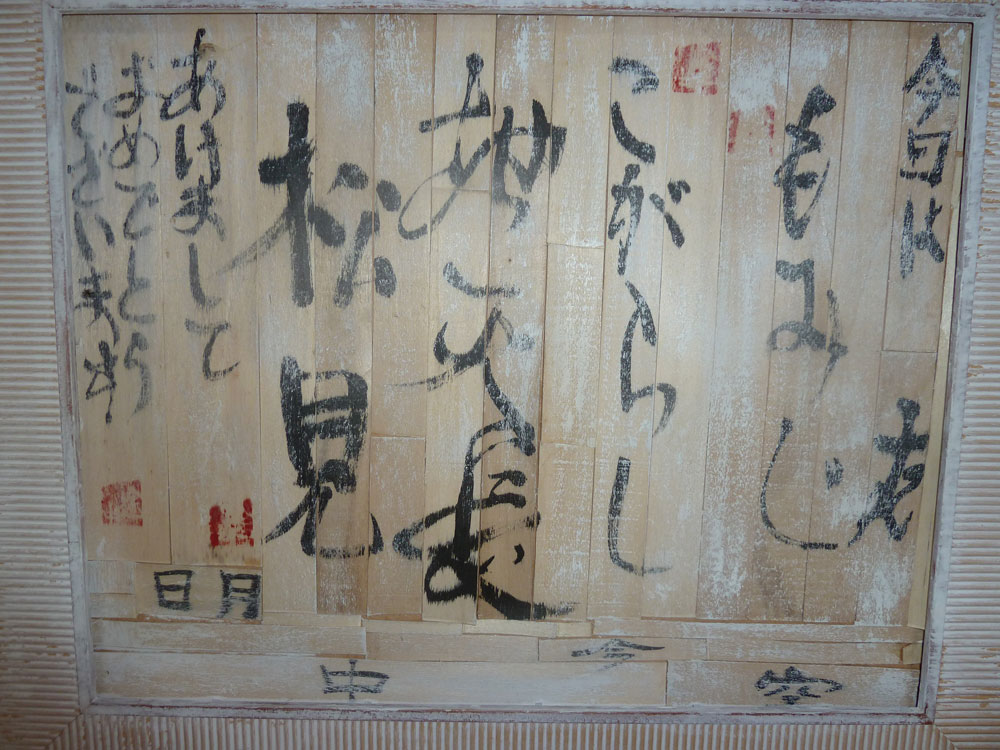 今日は
もみじ
こがらし
松見
あけまして
おめでとう
ございます
月日
今
中
空